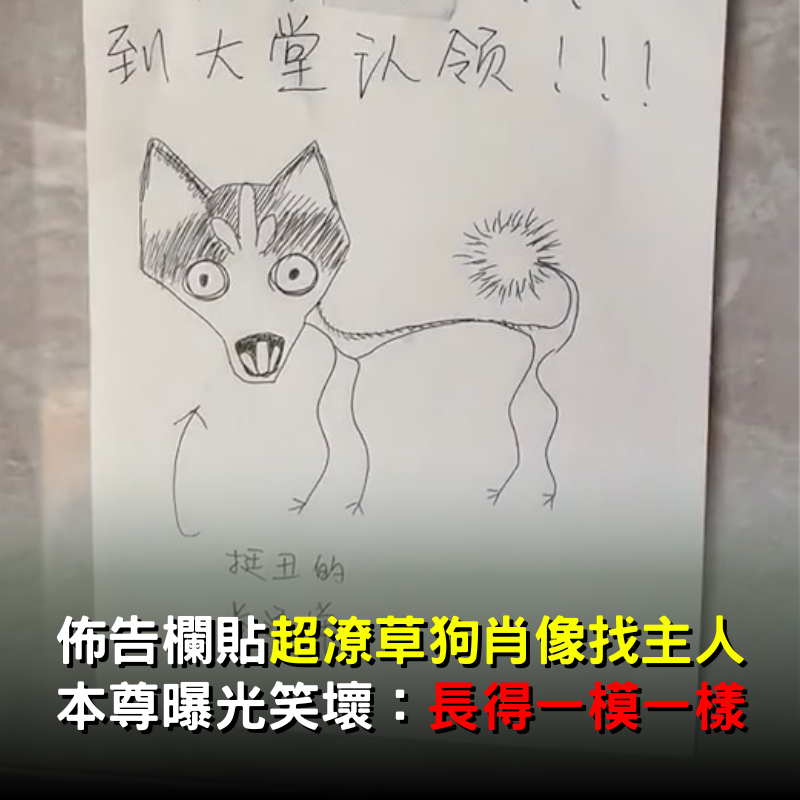 到大堂认领!!!
挺丑的
佈告欄貼超潦草狗肖像找主人
本尊曝光笑壞：長得一模一樣